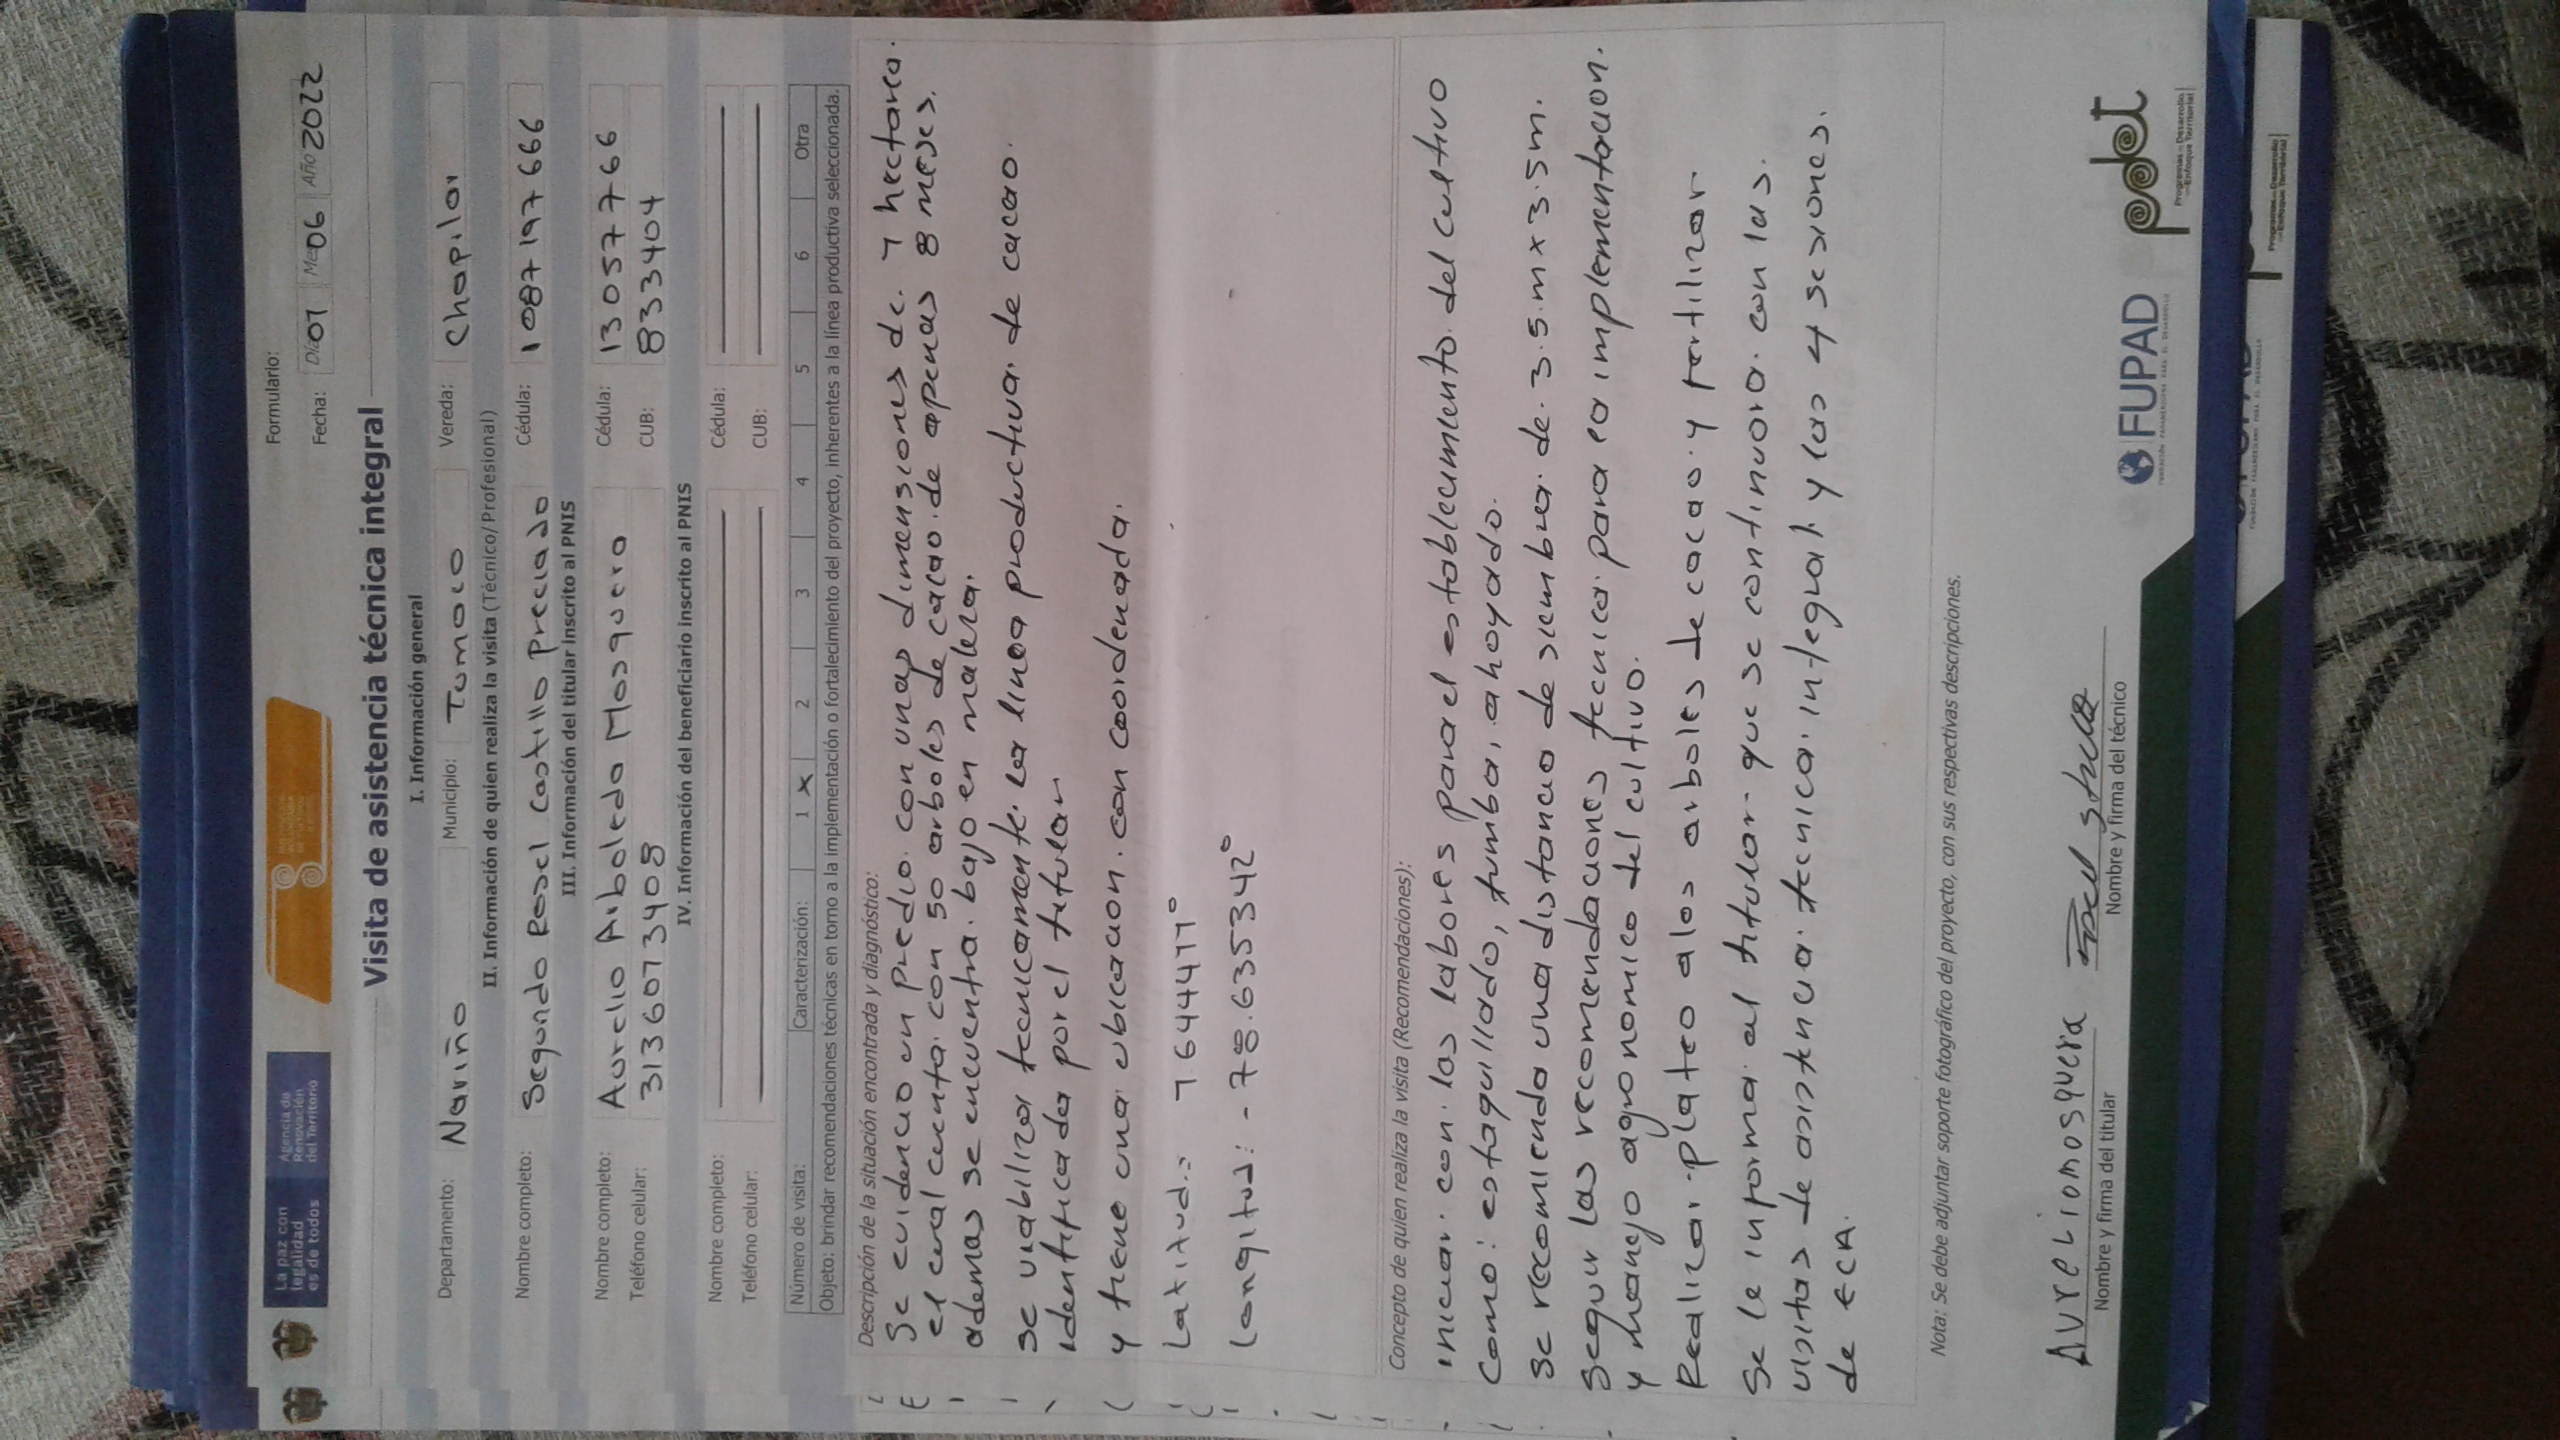 La paz con
legalidad
es de todos
Agencia de
Renovación
del Territorio
Formulario:
Fecha: Día 07 Mes 06 Año 2022
Visita de asistencia técnica integral
I. Información general
Departamento: Nariño Municipio: Tumaco Vereda: Chapilar
II. Información de quien realiza la visita (Técnico/Profesional)
Nombre completo: Segundo Rosel Castillo Preciado Cédula: 1087197666
III. Información del titular inscrito al PNIS
Nombre completo: Aurelio Arboleda Mosquera Cédula: 13057766
Teléfono celular: 3136073408 CUB: 833404
IV. Información del beneficiario inscrito al PNIS
Nombre completo: Cédula:
Teléfono celular: CUB:
Número de visita: Caracterización: 1 X 2 3 4 5 6 Otra
Objeto: brindar recomendaciones técnicas en torno a la implementación o fortalecimiento del proyecto, inherentes a la línea productiva seleccionada.
Descripción de la situación encontrada y diagnóstico:
Se evidencio un predio. con unas dimensiones de. 4 hectarea.
el cual cuenta. con 50 arboles de cacao. de apenas 8 meses.
ademas se encuentra. bajo en maleza.
se viabiliza tecnicamente. la linea productiva. de cacao.
identificada por el titular
y tiene una. ubicacion. con coordenada.
Latitud.:
Longitud: -78.635342°
Concepto de quien realiza la visita (Recomendaciones):
iniciar. con. las labores para el establecimiento. del cultivo
como: estaquillado, tumba, ahoyado.
se recomienda una distancia de siembra. de. 3.5.m x 3.5m.
seguir las recomendaciones tecnica. para la implementacion.
y manejo agronomico del cultivo.
Realizar. plateo a los arboles de cacao. y fertilizar
Se le informa. al titular. que se continuara. con las.
visitas de asistencia. tecnica. integral. y las 4 sesiones.
de ECA.
Nota: Se debe adjuntar soporte fotográfico del proyecto, con sus respectivas descripciones.
Aureliomosquera
Nombre y firma del titular
Nombre y firma del técnico
FUPAD
FUNDACIÓN PANAMERICANA PARA EL DESARROLLO
pdet
Programas de Desarrollo
con Enfoque Territorial